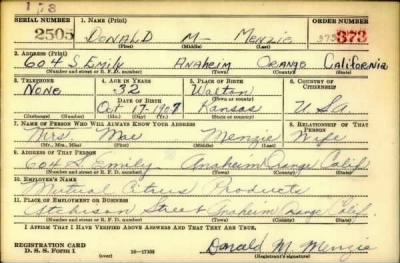 173
SERIAL NUMBER 1. NAME (Print) ORDER NUMBER
2505 DONALD M- Menzie 373
(First) (Middle) (Last)
2. ADDRESS (Print)
604 S. Emily Anaheim Orange California
(Number and street or R. F. D. number) (Town) (County) (State)
3. TELEPHONE 4. AGE IN YEARS 5. PLACE OF BIRTH 6. COUNTRY OF CITIZENSHIP
None 32 Walton
DATE OF BIRTH
Oct 17-1907 Kansas U S A
(Exchange) (Number) (Mo.) (Day) (Yr.) (Town or county) (State or country)
7. NAME OF PERSON WHO WILL ALWAYS KNOW YOUR ADDRESS 8. RELATIONSHIP OF THAT PERSON
Mrs. Mae Menzie Wife
(Mr., Mrs., Miss) (First) (Middle) (Last)
9. ADDRESS OF THAT PERSON
604 S. Emily Anaheim Orange Calif
(Number and street or R. F. D. number) (Town) (County) (State)
10. EMPLOYER'S NAME
Mutual Citrus Products
11. PLACE OF EMPLOYMENT OR BUSINESS
Atchison Street Anaheim Orange Calif
(Number and street or R. F. D. number) (Town) (County) (State)
I AFFIRM THAT I HAVE VERIFIED ABOVE ANSWERS AND THAT THEY ARE TRUE.
REGISTRATION CARD
D. S. S. Form 1 16-17105 Donald M. Menzie
(Registrant's signature)